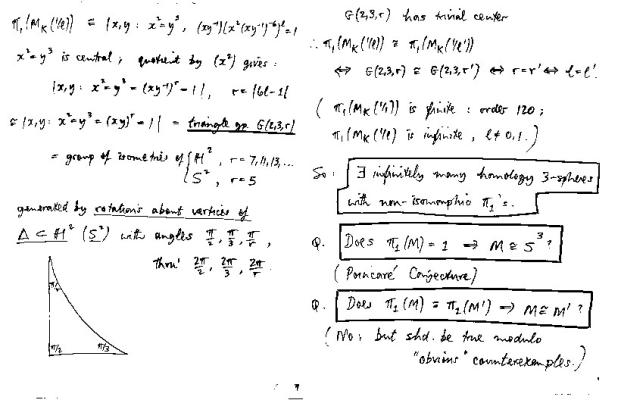 π₁(M_K(1/ℓ)) ≅ |x,y : x²=y³, (xy⁻¹)(x²(xy⁻¹)⁻⁶)^ℓ = 1|
x²=y³ is central; quotient by ⟨x²⟩ gives :
|x,y : x²=y³=(xy⁻¹)^r = 1|, r = |6ℓ-1|
≅ |x,y : x²=y³=(xy)^r = 1| = triangle gp G(2,3,r)
= group of isometries of { H², r = 7,11,13,...
S², r = 5
generated by rotations about vertices of
Δ ⊂ H² (S²) with angles π/2, π/3, π/r,
thro' 2π/2, 2π/3, 2π/r.
π/r
π/2 π/3
G(2,3,r) has trivial center
∴ π₁(M_K(1/ℓ)) ≅ π₁(M_K(1/ℓ'))
⇔ G(2,3,r) ≅ G(2,3,r') ⇔ r=r' ⇔ ℓ=ℓ'.
( π₁(M_K(1/1)) is finite : order 120 ;
π₁(M_K(1/ℓ)) is infinite, ℓ≠0,1. )
So : ∃ infinitely many homology 3-spheres
with non-isomorphic π₁'s.
Q. Does π₁(M) = 1 ⇒ M ≅ S³ ?
(Poincaré Conjecture)
Q. Does π₁(M) ≅ π₁(M') ⇒ M ≅ M' ?
(No; but shd. be true modulo
"obvious" counterexamples.)